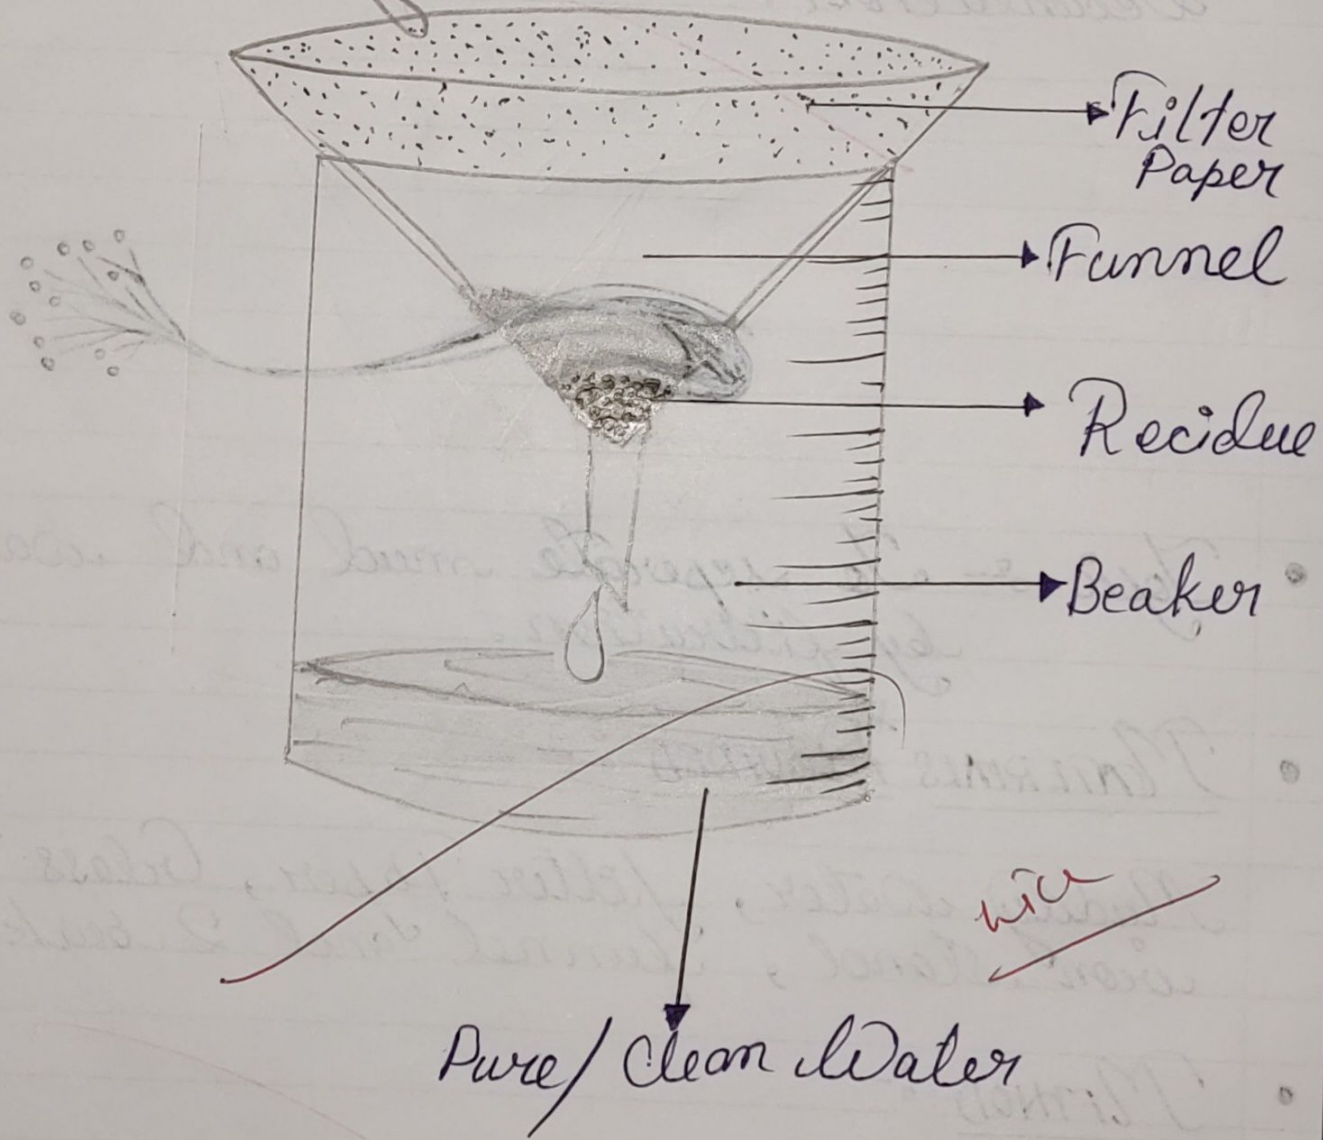 Filter
Paper
Funnel
Recidue
Beaker
nice
Pure/Clean Water